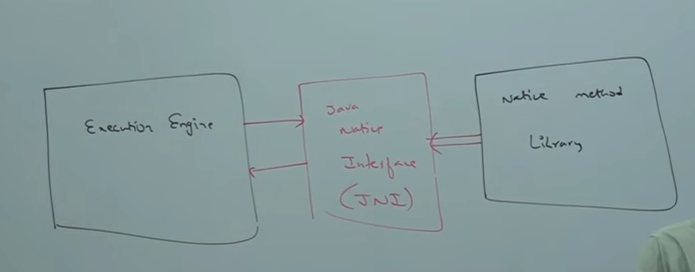 Execution Engine
Java
Native
Interface
(JNI)
Native method
Library